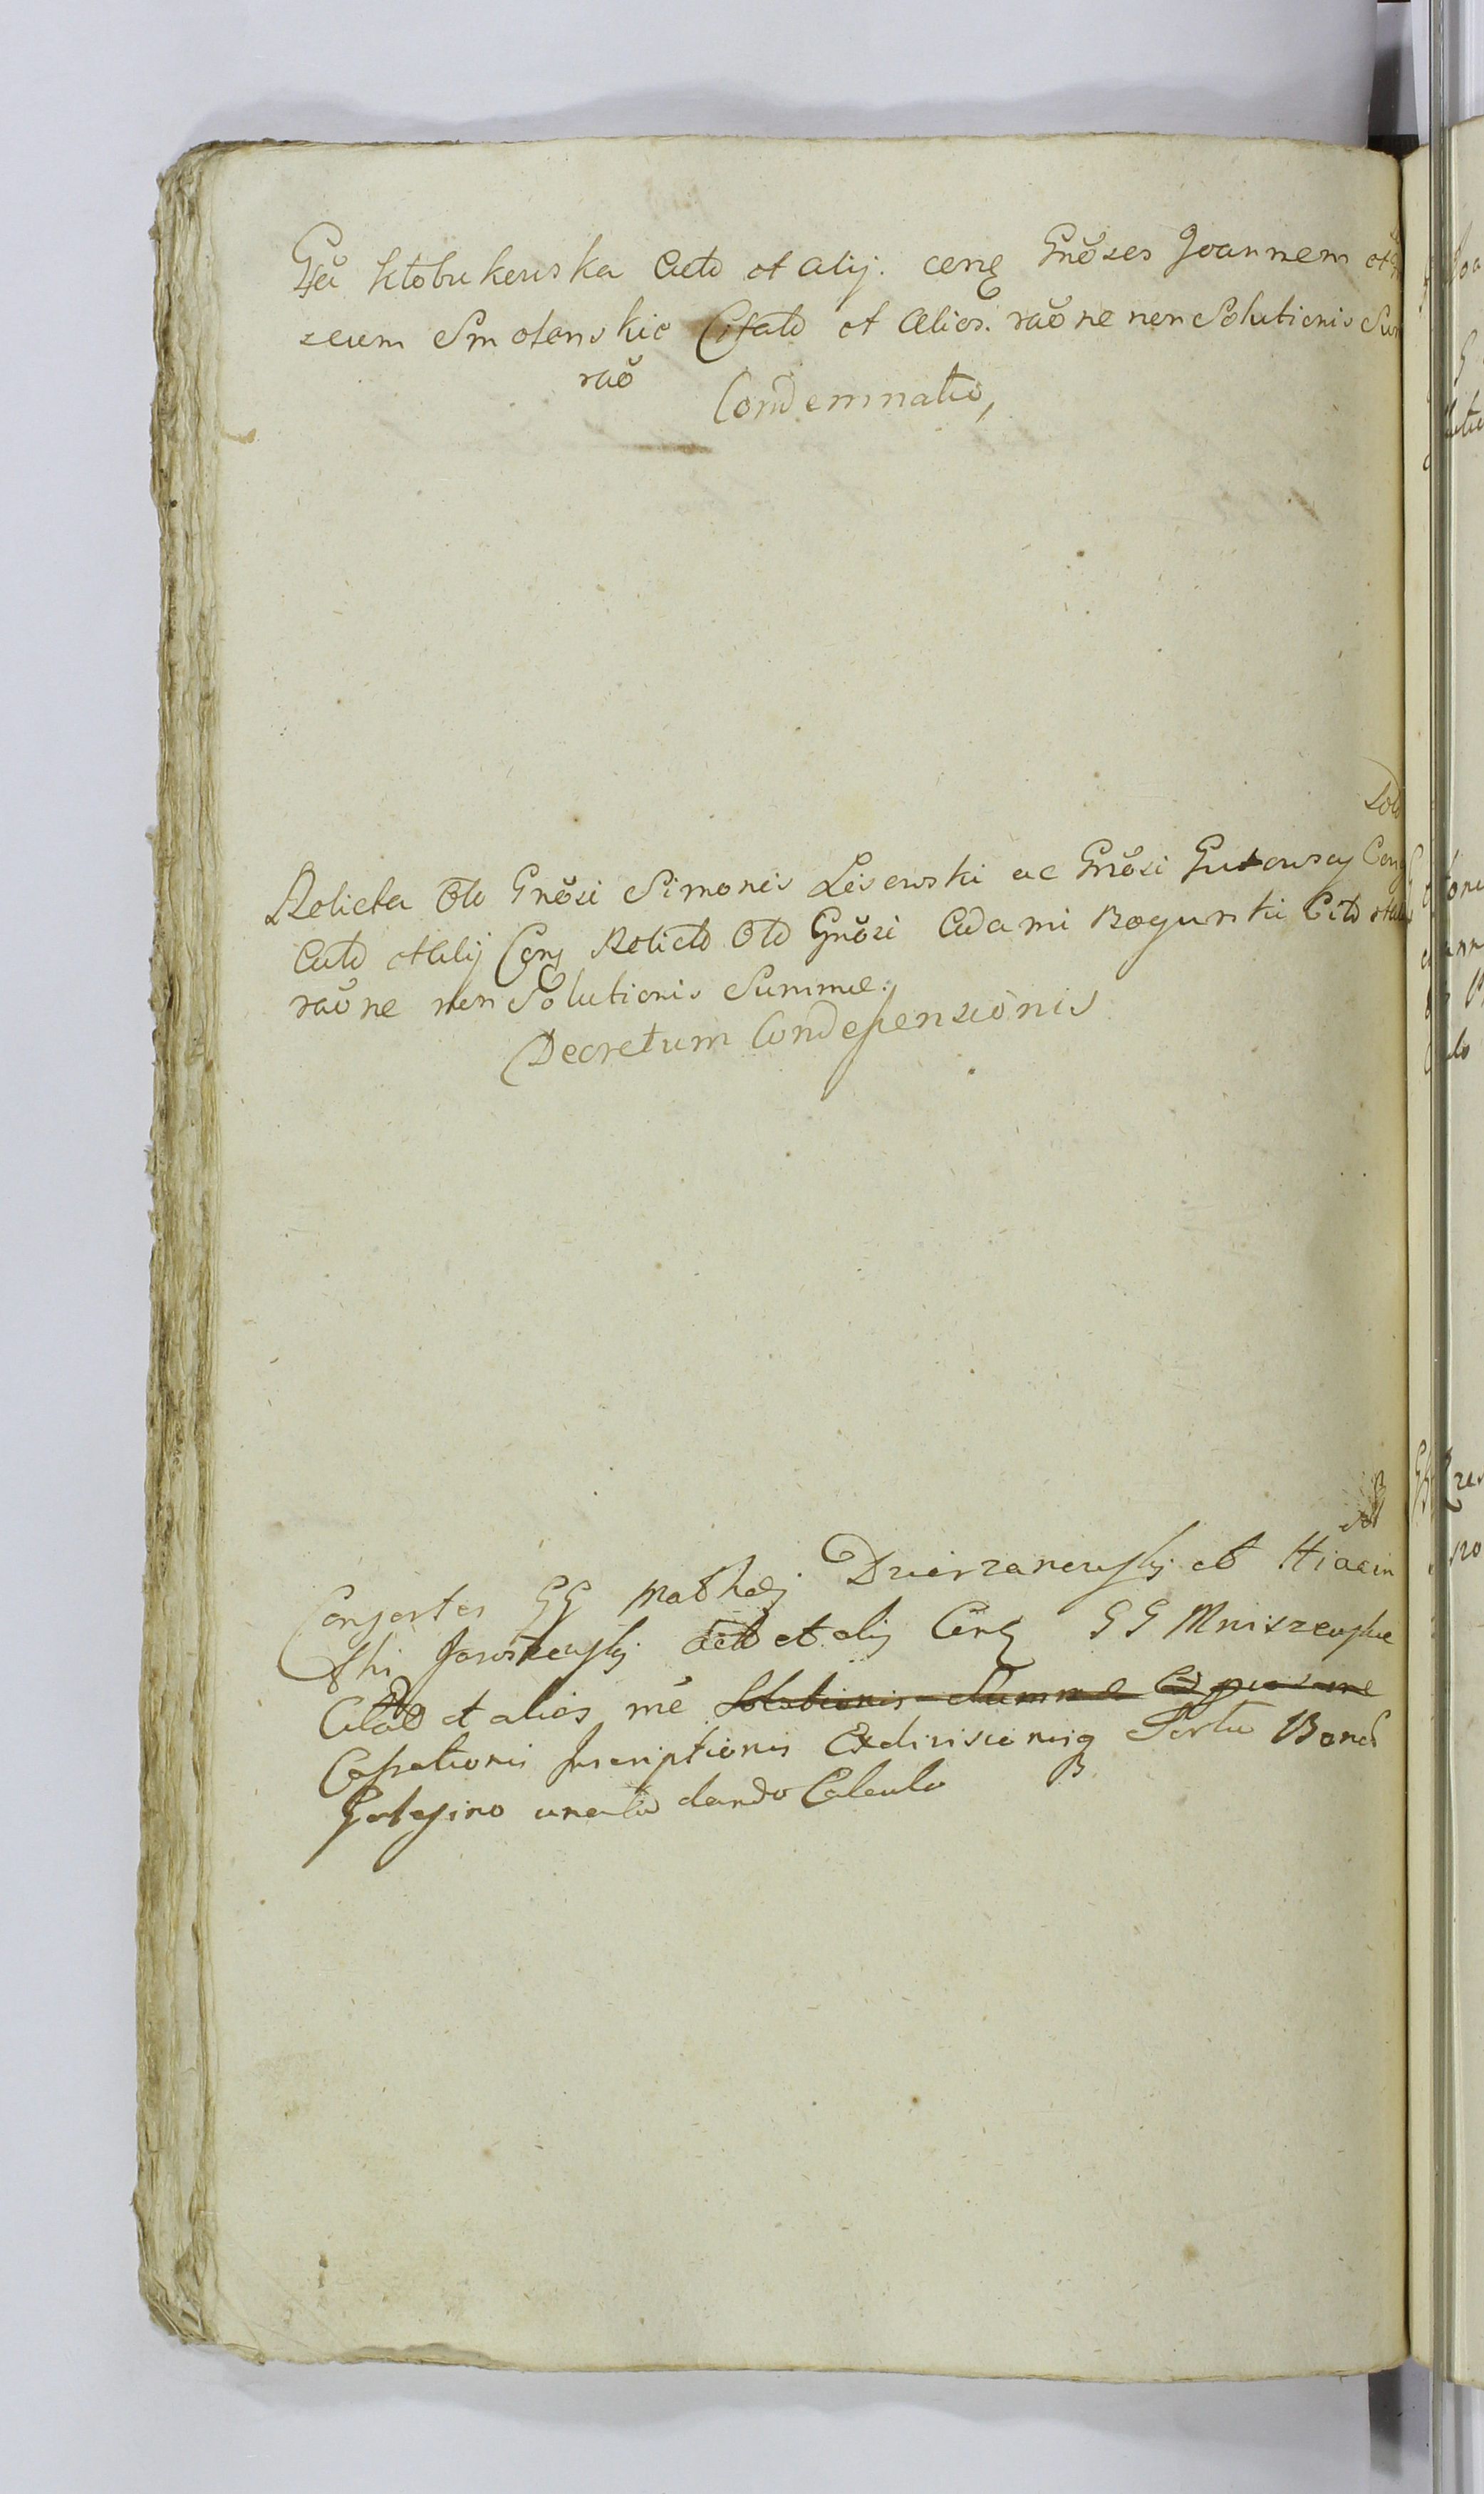 Gsa Kłobukowska Acto et alij. conq Gnoses Joannem et
zeum Smolenskie Citato et Alios. raone non Solutionis Sum
rao
Condemnatio,
Relicta Oto Gnosi Simonis Lisowski ac Gnosi Gutowscy Conq
Acto et alij Conq Relicto Oto Gnosi Adami Bogurski Cito et alios
raone non Solutionis Summae.
Decretum Condescensionis
Consortes GG Mathej Dzierzanowskj et Hiacin
thi Jaroszewskj Acto et alij Conq GG Mniszewskie
Citato et alios rne Solutionis Summae
Cassationis Inscriptionis Exdivisionisq Sortis Bonor
dando Calculo